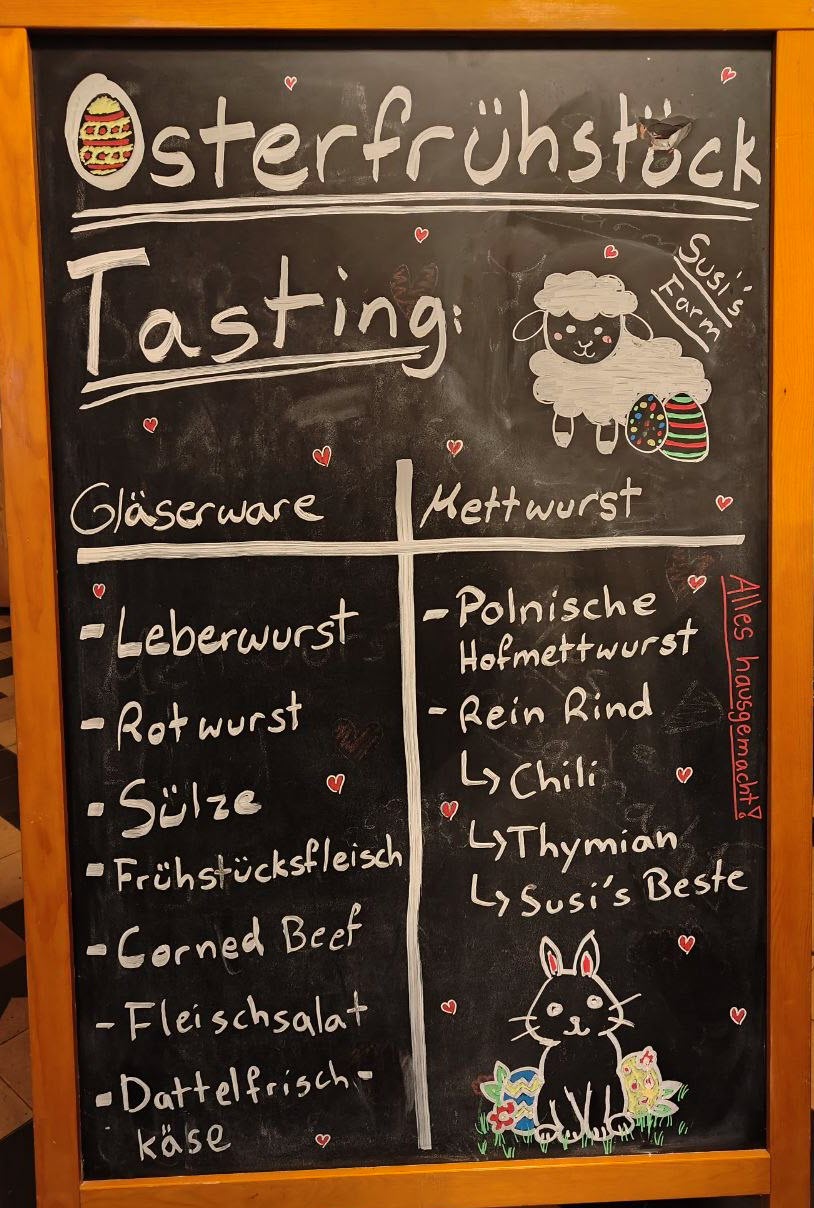 Osterfrühstück
Tasting:
Susi's
Farm
Gläserware
- Leberwurst
- Rotwurst
- Sülze
- Frühstücksfleisch
- Corned Beef
- Fleischsalat
- Dattelfrisch-
käse
Mettwurst
- Polnische
Hofmettwurst
- Rein Rind
↳ Chili
↳ Thymian
↳ Susi's Beste
Alles hausgemacht!